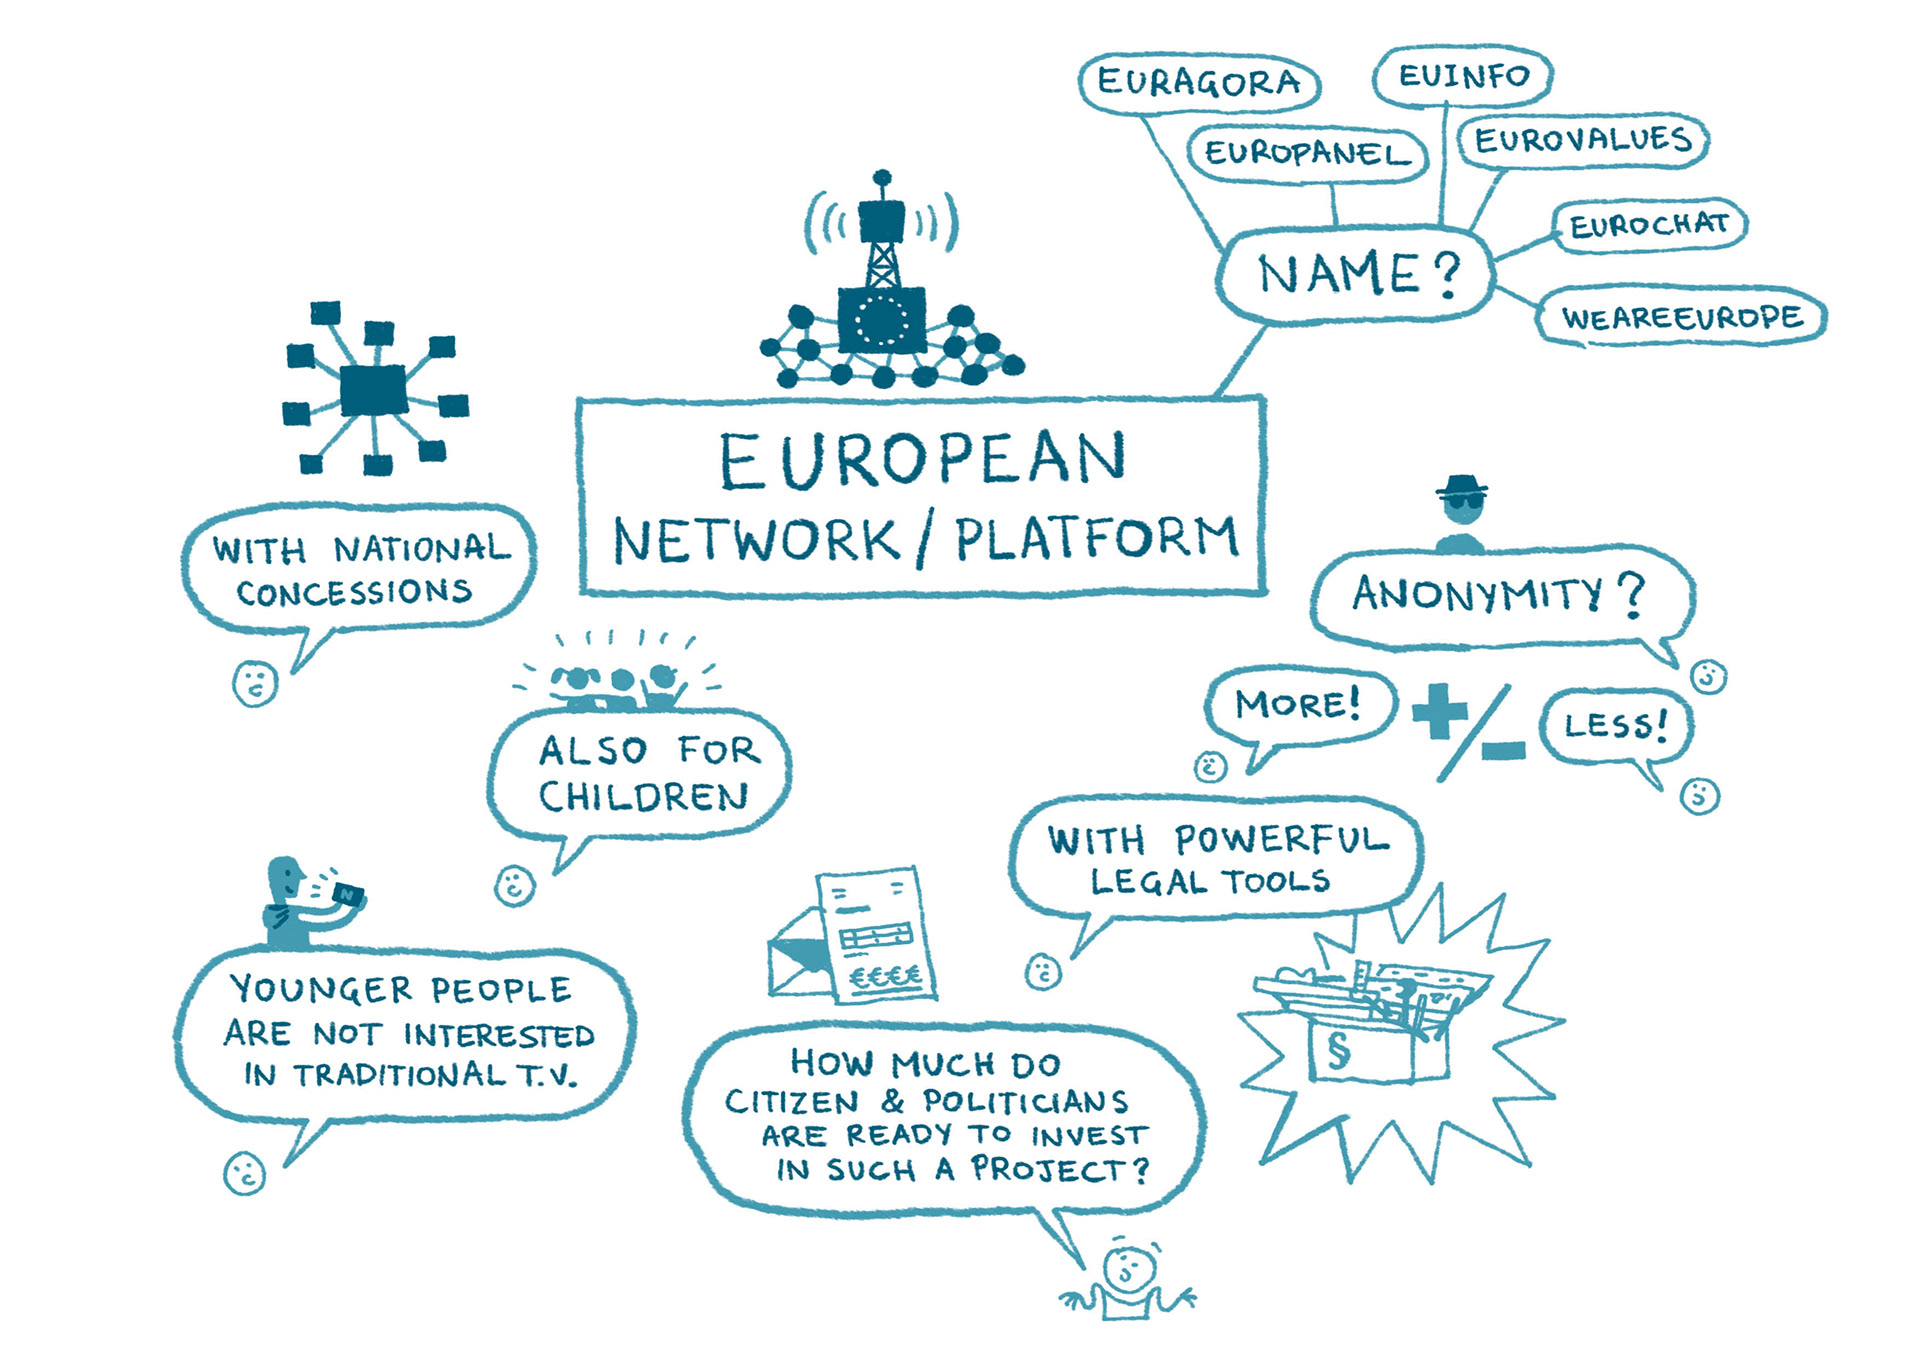 EURAGORA
EUINFO
EUROPANEL
EUROVALUES
EUROCHAT
WEAREEUROPE
NAME?
EUROPEAN
NETWORK/PLATFORM
WITH NATIONAL
CONCESSIONS
ANONYMITY?
MORE!
+/-
LESS!
ALSO FOR
CHILDREN
WITH POWERFUL
LEGAL TOOLS
§
N
YOUNGER PEOPLE
ARE NOT INTERESTED
IN TRADITIONAL T.V.
€€€€
HOW MUCH DO
CITIZEN & POLITICIANS
ARE READY TO INVEST
IN SUCH A PROJECT?